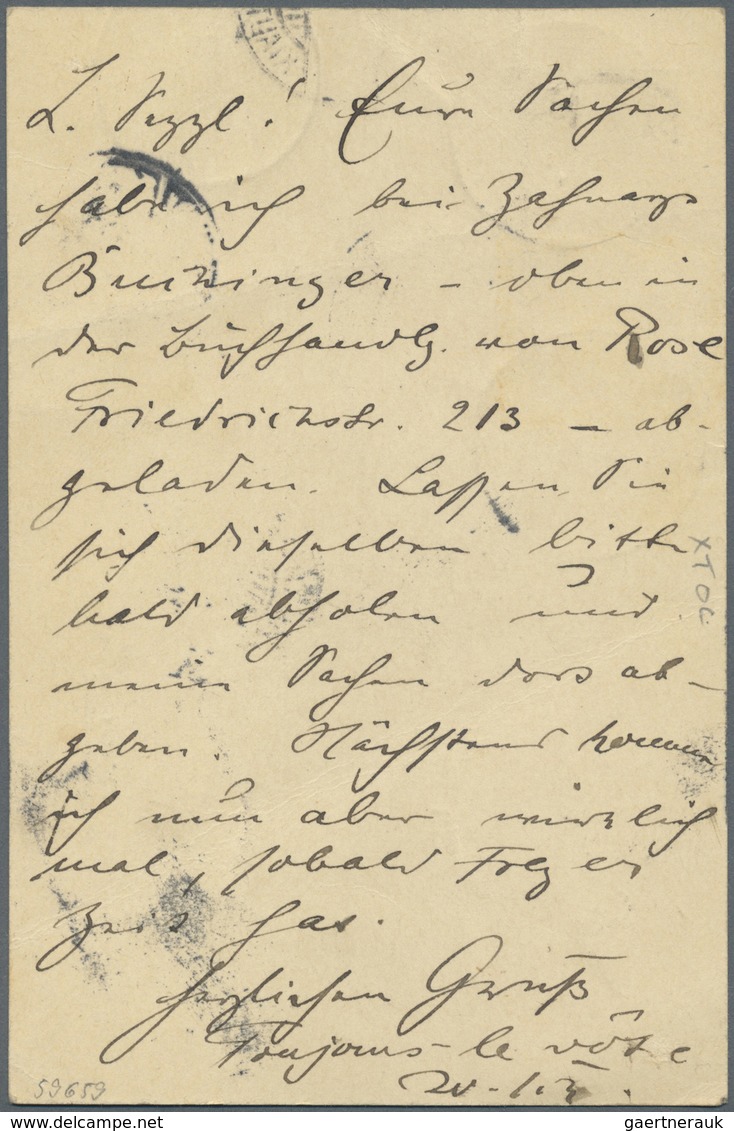 L. Sezzl! Eure Sachen
habe ich bei Zahnarzt
- oben in
der Buchhandlg. von Rose
Friedrichstr. 213 - ab-
geladen. Lassen Sie
sich dieselben bitte
bald abholen und
meine Sachen dort ab-
geben. Nächstens komme
ich nun aber wirklich
mal, sobald er
Zeit hat.
Herzlichen Gruß
Toujours le vôtre
59659
gaertnerauk